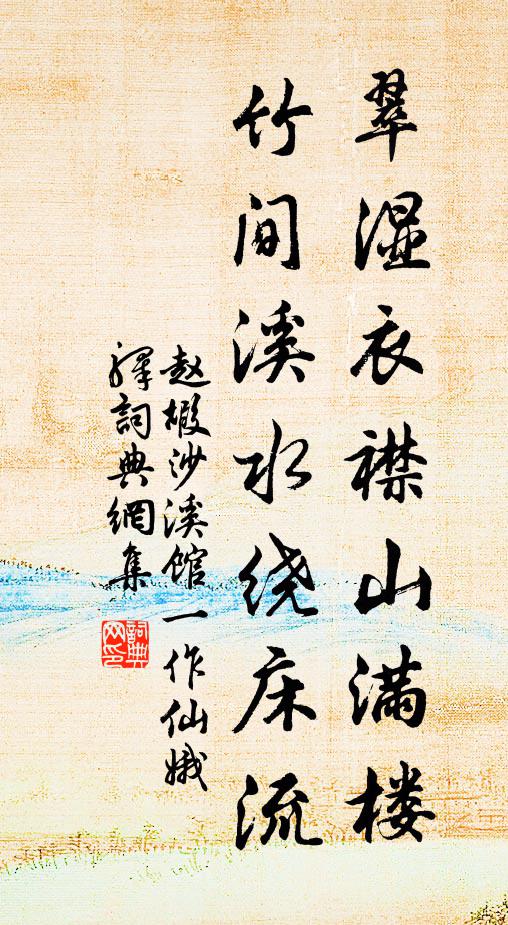 翠湿衣襟山满楼
竹间溪水绕床流
赵嘏沙溪馆一作仙娥
驿詞典網集
詞典网印